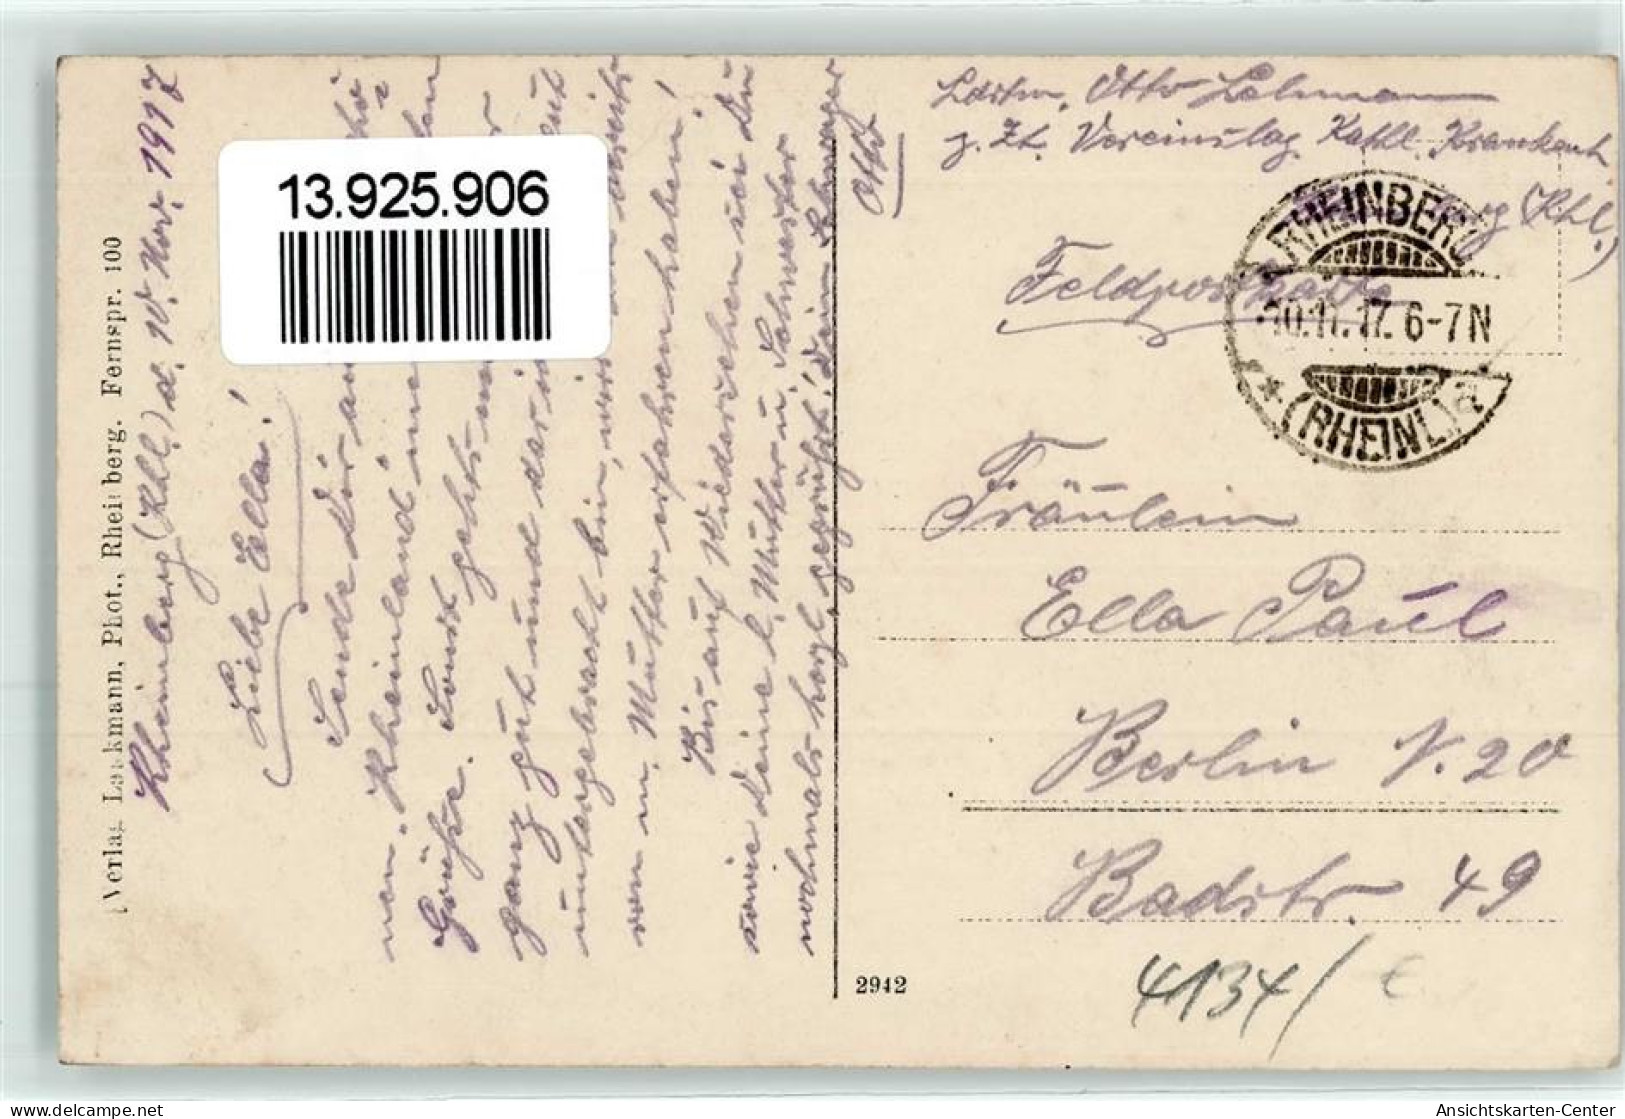 13.925.906
Verlag Lackmann, Phot., Rheinberg. Fernspr. 100
Rheinberg (Rhl.) d. 10. Nov. 1917
Liebe Ella!
Sende Dir
nen. Rheinland
Grüße. Sonst geht's
ganz gut und
untergebracht bin, wirst
von m. Mutter erfahren haben!
Bis auf Wiedersehen sei Du
sowie Deine l. Mutter u. Schwester
nochmals herzl. gegrüßt! Dein Schwager
Otto
Ldstm. Otto Lehmann
z. Zt. Vereinslaz. Kathl. Krankenh.
(Rhl.)
Feldpostkarte
RHEINBERG
10.11.17. 6-7N
(RHEINL) a
Fräulein
Ella Paul
Berlin N. 20
Badstr. 49
2942
4134/
delcampe.net
Ansichtskarten-Center